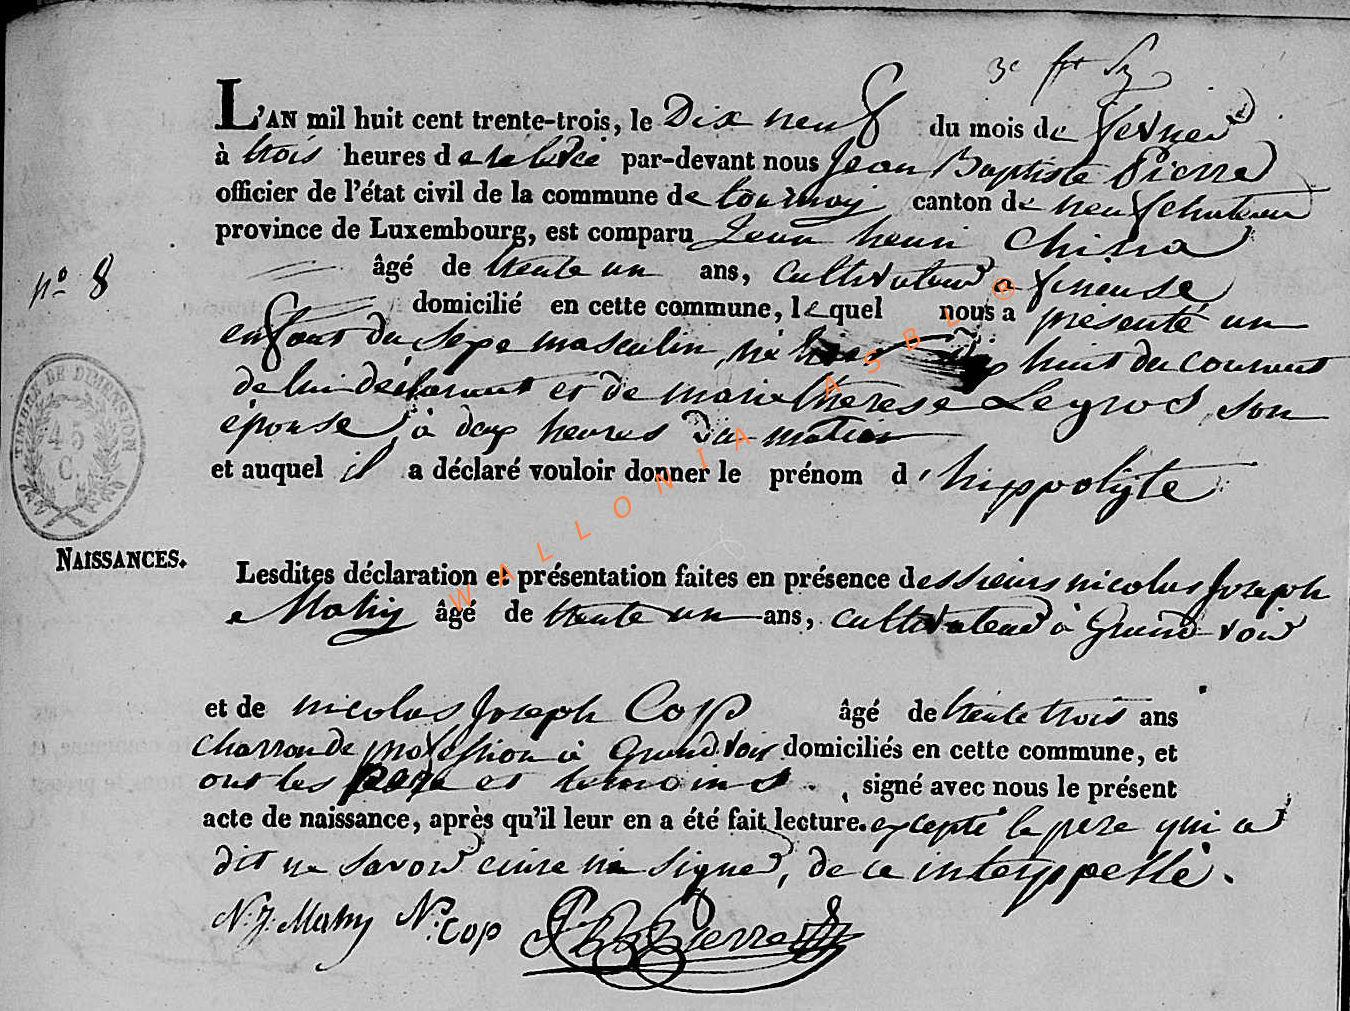 3e
L'AN mil huit cent trente-trois, le Dix neuf du mois de fevrier
à trois heures de relevée par-devant nous Jean Baptiste Pierre
officier de l'état civil de la commune de tournay canton de neufchateau
province de Luxembourg, est comparu Jean henri China
âgé de trente un ans, cultivateur a fineuse
n° 8
domicilié en cette commune, lequel nous a présenté un
enfant du sexe masculin né huit du courant
de lui déclarant et de marie therese Legros, son
épouse, à deux heures Du matin
et auquel il a déclaré vouloir donner le prénom d'hippolyte
TIMBRE DE DIMENSION
45
C.
NAISSANCES.
Lesdites déclaration et présentation faites en présence des sieurs nicolas Joseph
Mahy âgé de trente un ans, cultivateur à Grand voir
et de nicolas Joseph Cop âgé de trente trois ans
charron de profession à Grandvoir domiciliés en cette commune, et
ont les pere et temoins signé avec nous le présent
acte de naissance, après qu'il leur en a été fait lecture. excepté le pere qui a
dit ne savoir ecrire ni signer, de ce interppellé.
N. J. Mahy N. Cop Pierre
WALLONIA ASBL ©